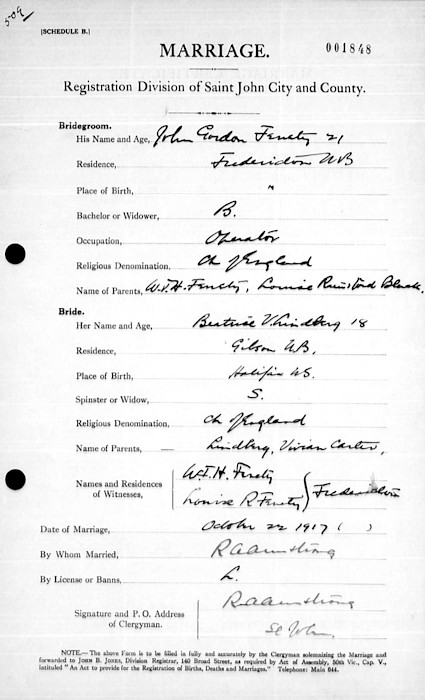 509
[SCHEDULE B.]
MARRIAGE. 001848
Registration Division of Saint John City and County.
Bridegroom.
His Name and Age, John Gordon Fenety 21
Residence, Fredericton NB
Place of Birth, "
Bachelor or Widower, B.
Occupation, Operator
Religious Denomination, Ch of England
Name of Parents, W.T.H. Fenety, Louise Rainsford Black.
Bride.
Her Name and Age, Beatrice V. Lindberg 18
Residence, Gibson NB,
Place of Birth, Halifax NS.
Spinster or Widow, S.
Religious Denomination, Ch of England
Name of Parents, — Lindberg, Vivian Carter,
Names and Residences of Witnesses, W.T.H. Fenety
Louise R Fenety } Fredericton
Date of Marriage, October 22 1917 ( )
By Whom Married, R A Armstrong
By License or Banns, L.
Signature and P. O. Address of Clergyman. R A Armstrong
St John.
NOTE.—The above Form is to be filled in fully and accurately by the Clergyman solemnizing the Marriage and
forwarded to JOHN B. JONES, Division Registrar, 140 Broad Street, as required by Act of Assembly, 50th Vic., Cap. V.,
intituled "An Act to provide for the Registration of Births, Deaths and Marriages." Telephone: Main 644.